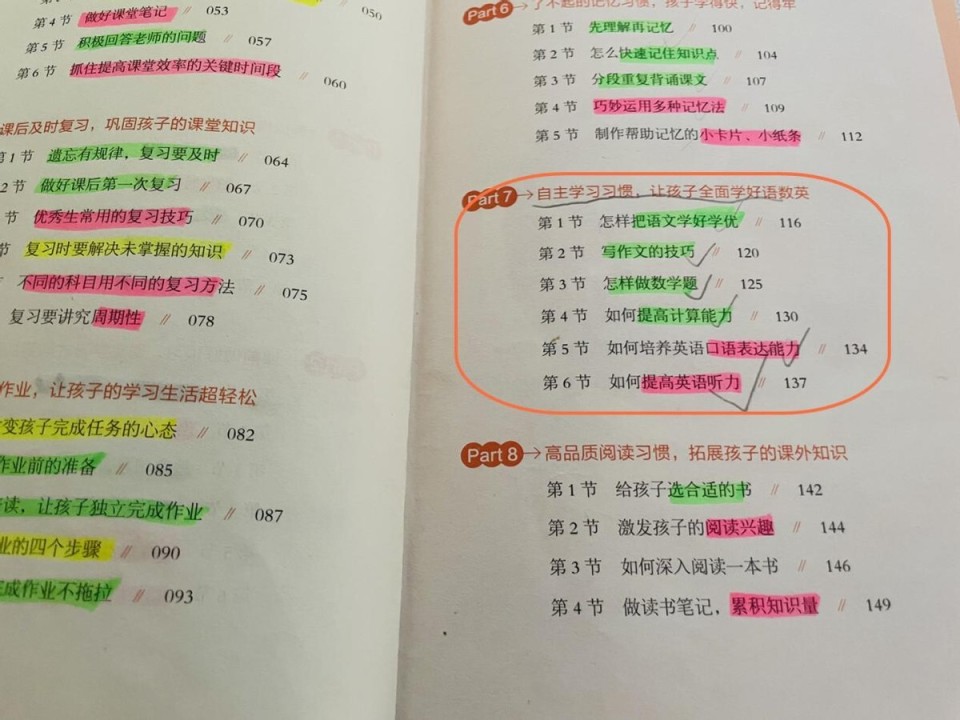 050
第4节 做好课堂笔记 // 053
第5节 积极回答老师的问题 // 057
第6节 抓住提高课堂效率的关键时间段 // 060
课后及时复习，巩固孩子的课堂知识
第1节 遗忘有规律，复习要及时 // 064
2节 做好课后第一次复习 // 067
节 优秀生常用的复习技巧 // 070
节 复习时要解决未掌握的知识 // 073
不同的科目用不同的复习方法 // 075
复习要讲究周期性 // 078
作业，让孩子的学习生活超轻松
变孩子完成任务的心态 // 082
作业前的准备 // 085
读，让孩子独立完成作业 // 087
业的四个步骤 // 090
完成作业不拖拉 // 093
Part 6 → 了不起的记忆习惯，孩子学得快，记得牢
第1节 先理解再记忆 // 100
第2节 怎么快速记住知识点 // 104
第3节 分段重复背诵课文 // 107
第4节 巧妙运用多种记忆法 // 109
第5节 制作帮助记忆的小卡片、小纸条 // 112
Part 7 → 自主学习习惯，让孩子全面学好语数英
第1节 怎样把语文学好学优 // 116
第2节 写作文的技巧 // 120
第3节 怎样做数学题 // 125
第4节 如何提高计算能力 // 130
第5节 如何培养英语口语表达能力 // 134
第6节 如何提高英语听力 // 137
Part 8 → 高品质阅读习惯，拓展孩子的课外知识
第1节 给孩子选合适的书 // 142
第2节 激发孩子的阅读兴趣 // 144
第3节 如何深入阅读一本书 // 146
第4节 做读书笔记，累积知识量 // 149